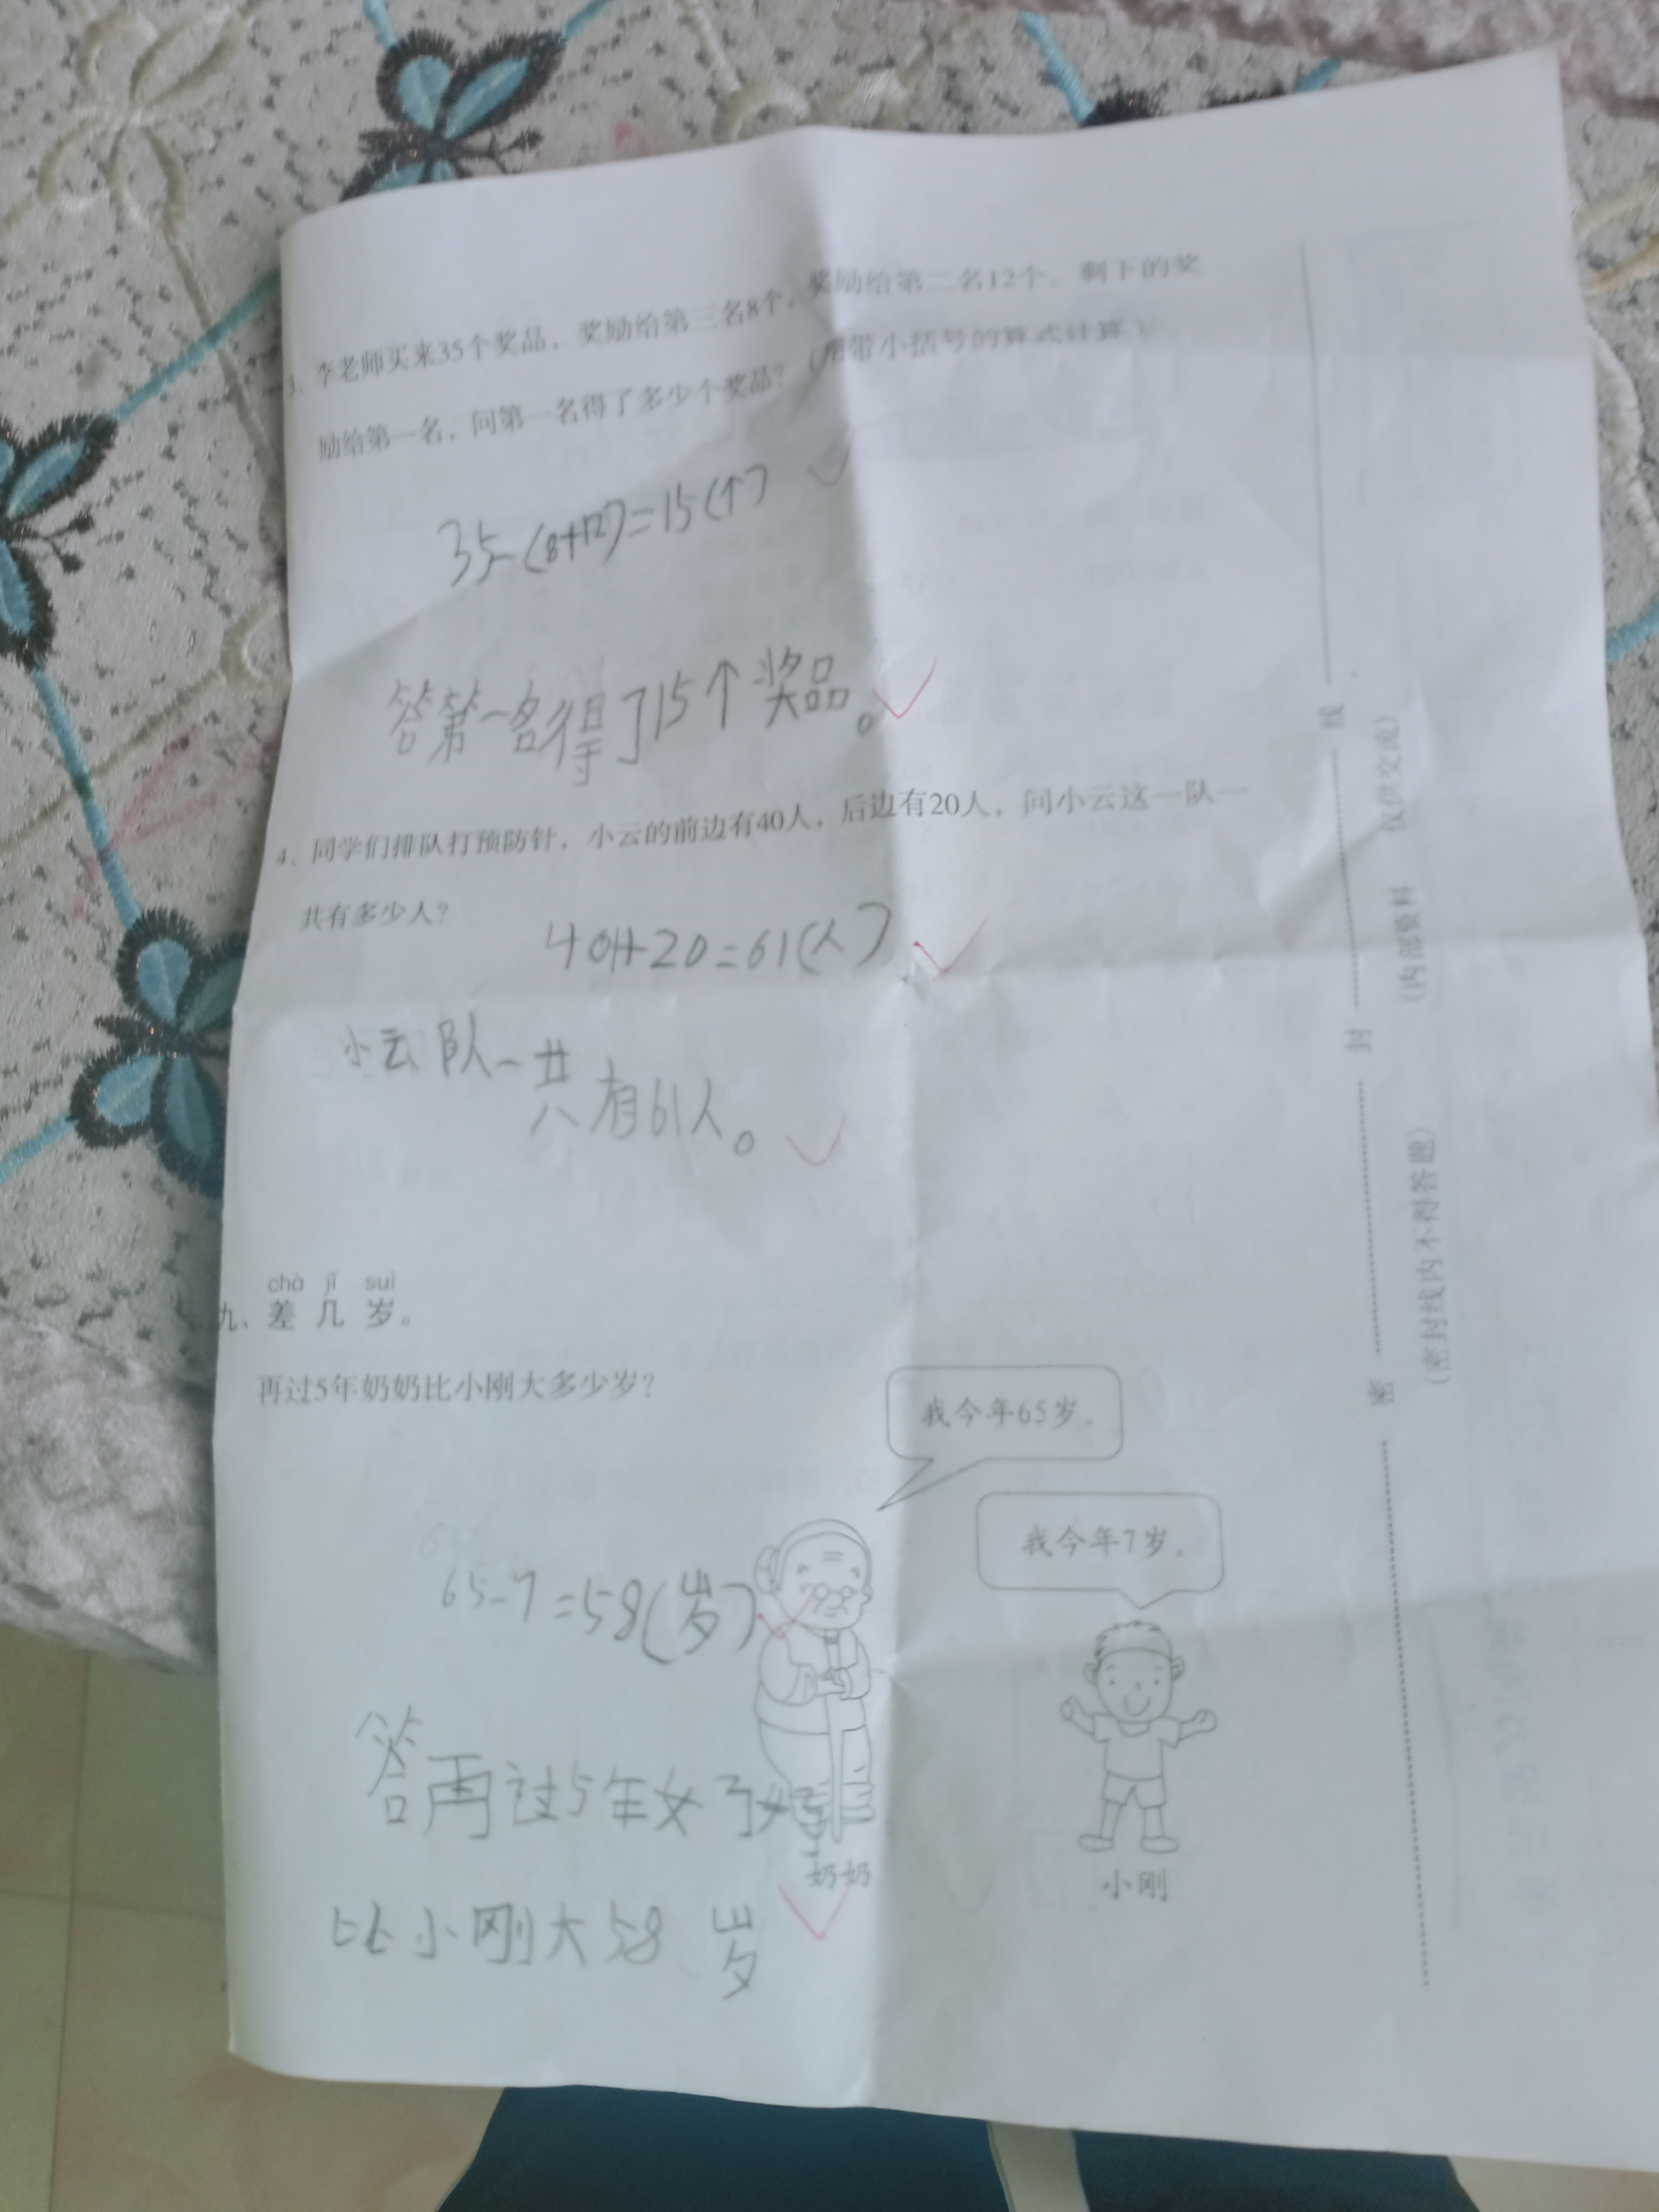 3、李老师买来35个奖品，奖励给第三名8个，奖励给第二名12个。剩下的奖
励给第一名，问第一名得了多少个奖品？（用带小括号的算式计算）
35-(8+12)=15(个)
答第一名得了15个奖品。
4、同学们排队打预防针，小云的前边有40人，后边有20人，问小云这一队一
共有多少人？
40+1+20=61(人)
小云队一共有61人。
chà jǐ suì
九、差几岁。
再过5年奶奶比小刚大多少岁？
我今年65岁。
我今年7岁。
65-7=58(岁)
答再过5年奶奶
比小刚大58岁
奶奶
小刚
密 封 线
（密封线内不得答题） （内部资料 仅供交流）